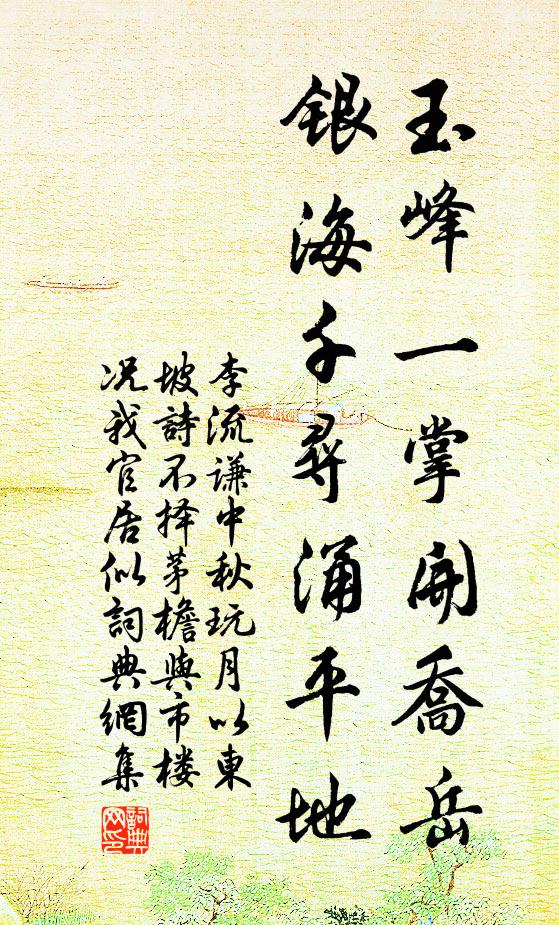 玉峰一掌開喬岳
銀海千尋涌平地
李流謙中秋玩月以東
坡詩不择茅檐與市楼
况我官居似詞典網集
詞典
网印